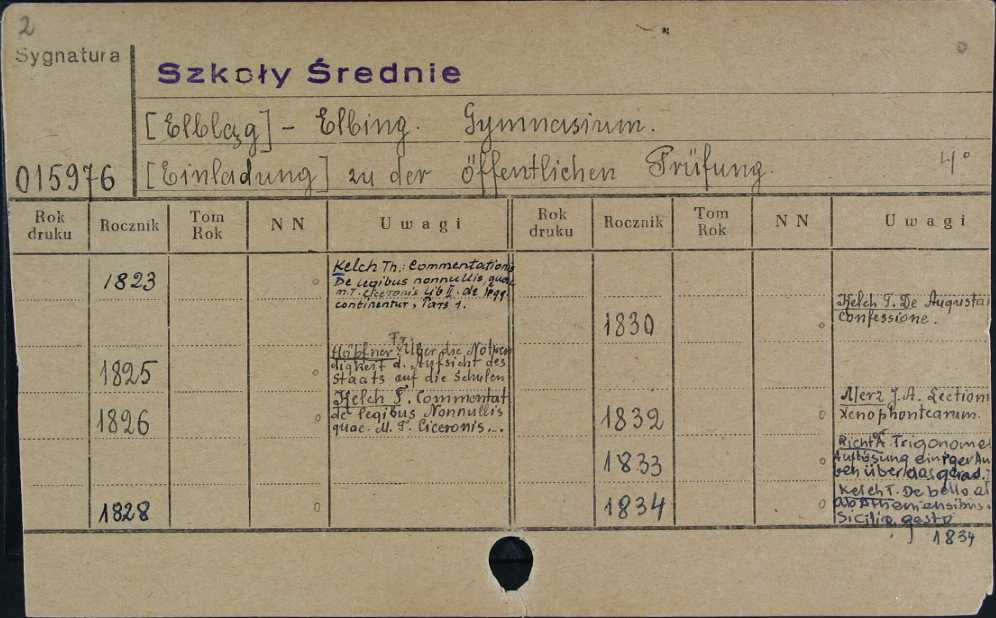 2
Sygnatura
Szkoły Średnie
[Elbląg] - Elbing. Gymnasium.
015976
[Einladung] zu der öffentlichen Prüfung.
4°
Rok druku
Rocznik
Tom Rok
N N
Uwagi
Rok druku
Rocznik
Tom Rok
N N
Uwagi
1823
Kelch Th.: Commentationis
De legibus nonnullis quae
M.T. Ciceronis lib II. de legg.
continentur, Pars 1.
1825
Fr.
Höpfner Über die Notwen
digkeit d. Aufsicht des
Staats auf die Schulen
1826
Kelch T. Commentat
de legibus Nonnullis
quae M. T. Ciceronis...
1828
1830
Kelch T. De Augustai
Confessione.
1832
Merz J.A. Lection
Xenophontearum.
1833
Richt A. Trigonome
Auflösung einiger Au
ben über das grad.
1834
Kelch T. De bello a
ab Atheniensibus
Sicilia gesto
1834